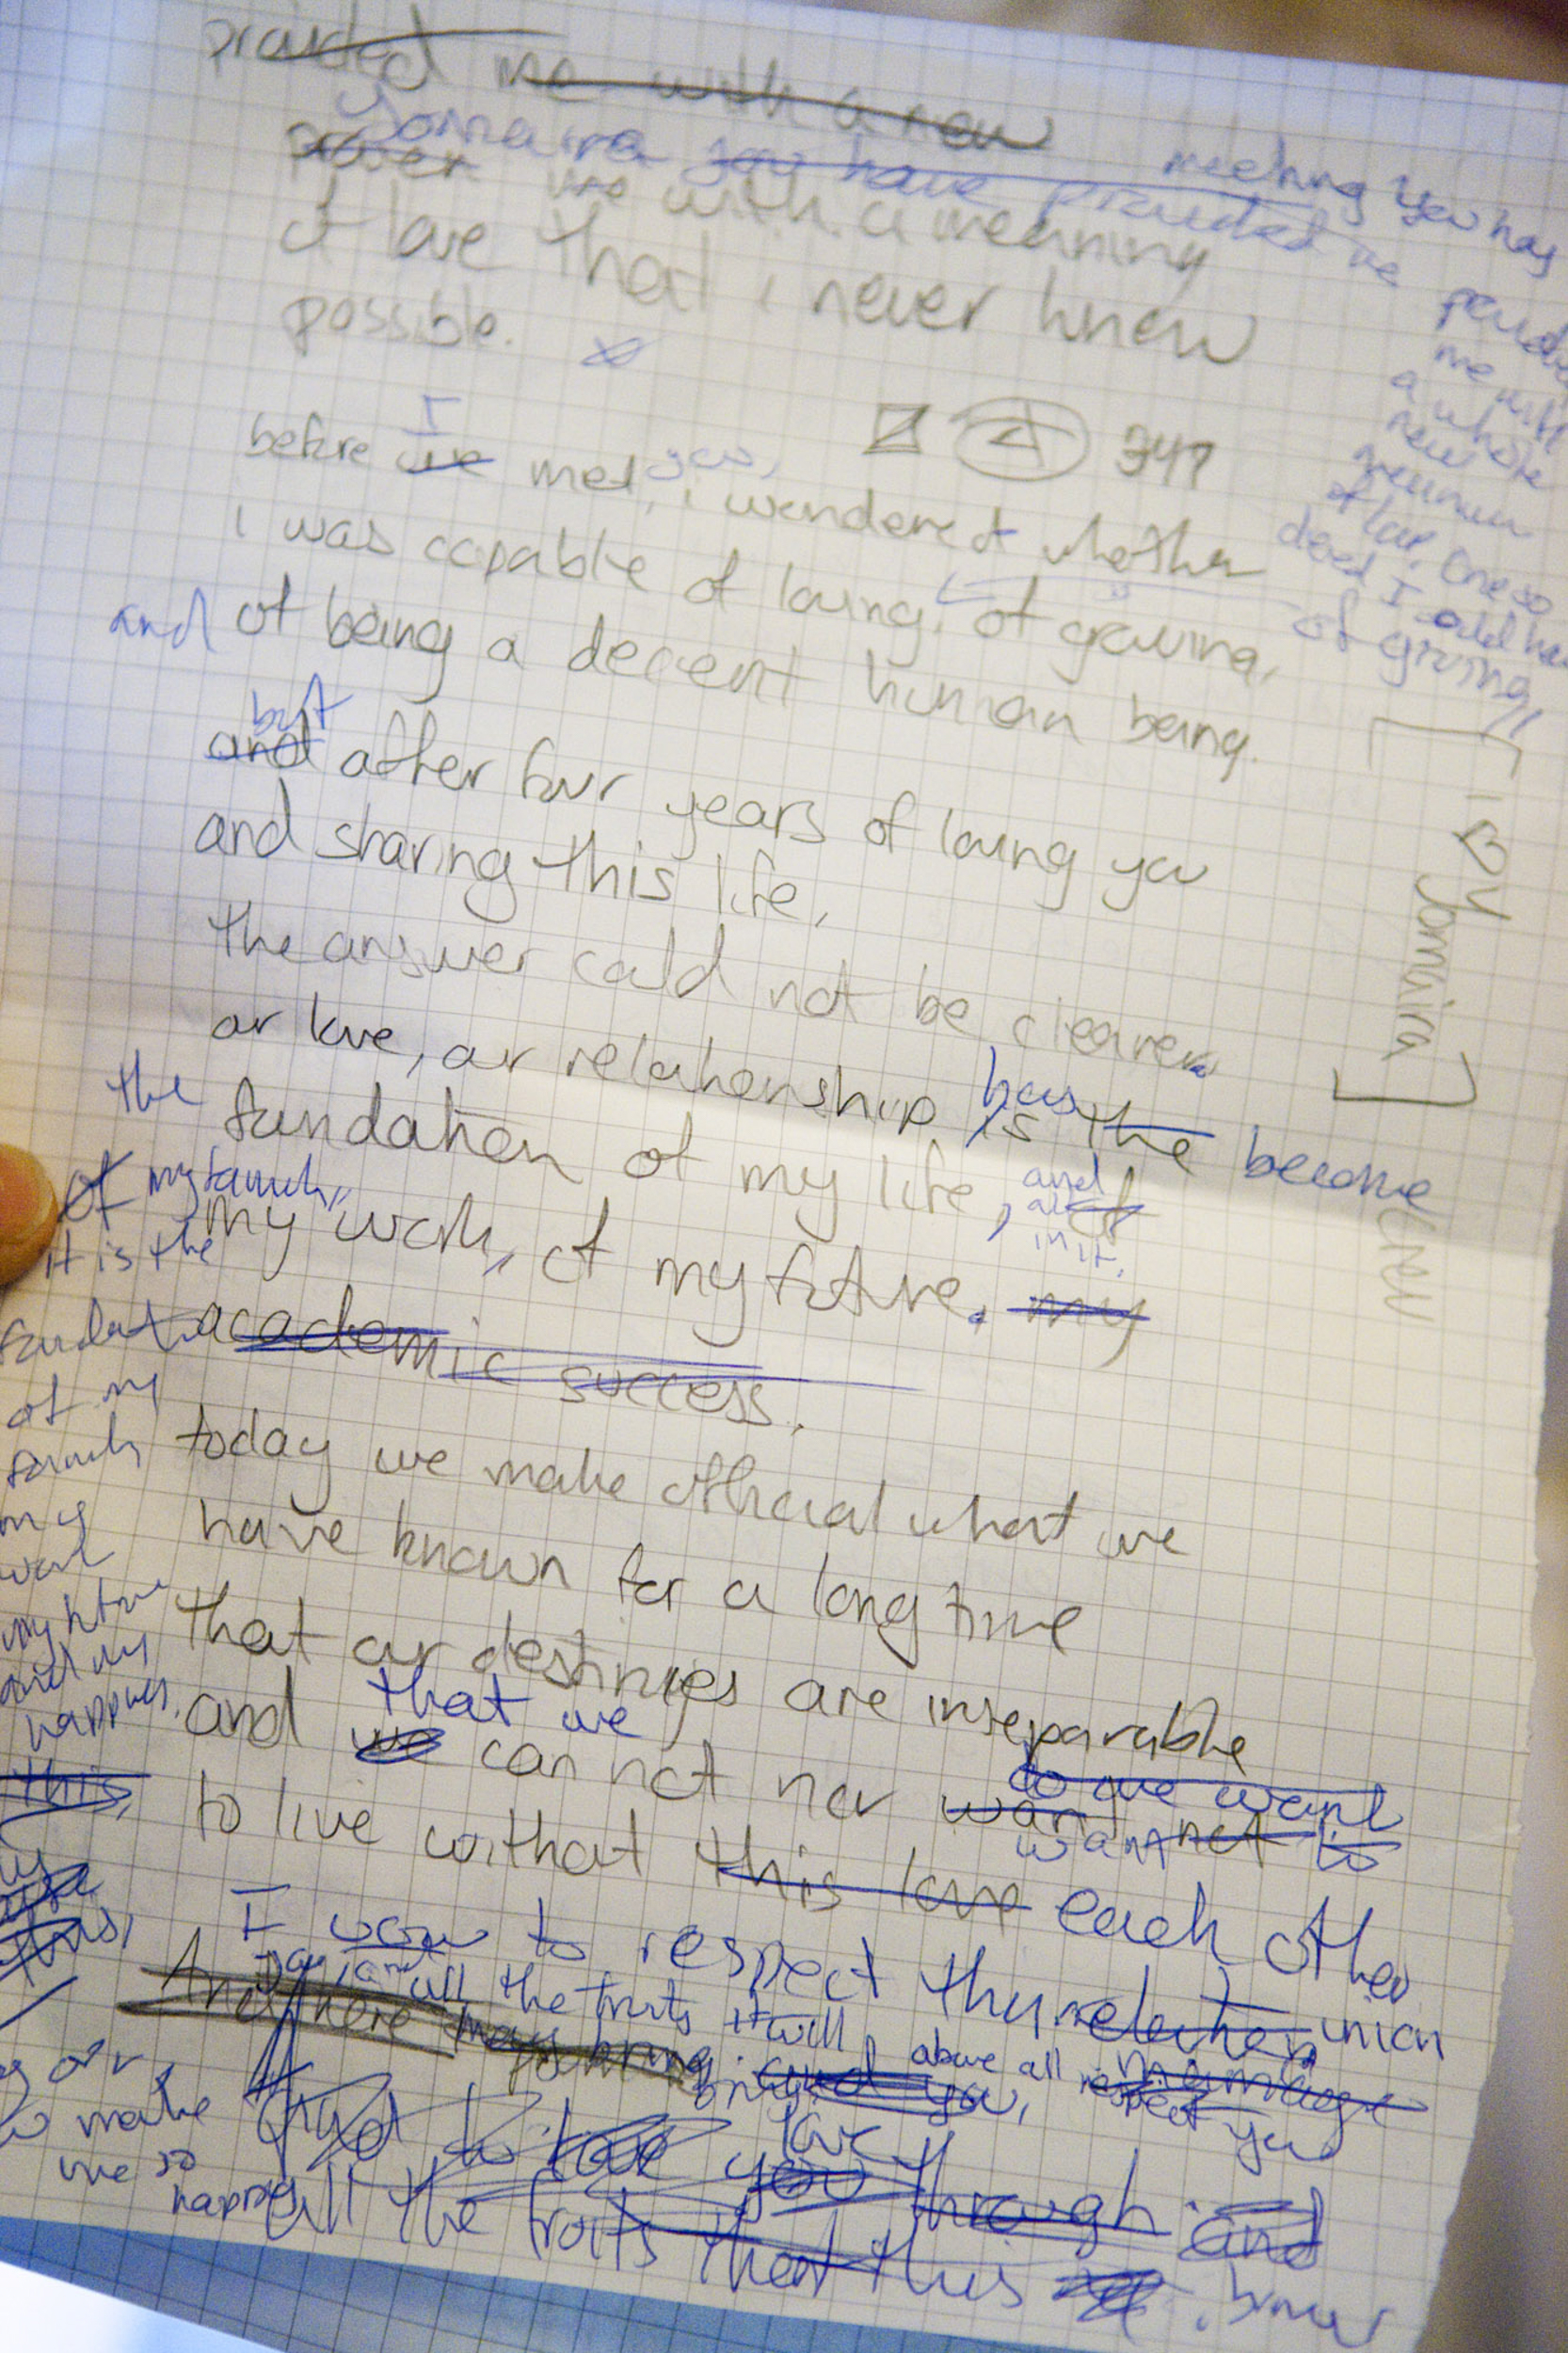 provided me with a new
Jomaira you have provided me
meeting you has
me with a meaning
of love that i never knew
possible.
me with
a whole
new
of love. One so
deed I could have
347
I
before we met you, i wondered whether
i was capable of loving, of growing,
of giving,
and of being a decent human being.
but
and after four years of loving you
and sharing this life,
the answer could not be clearer.
I ♡ U
Jomaira
our love, our relationship has is the become
the foundation of my life, and all of
in it.
of my family,
my work, of my future. my
it is the
academic success.
foundation
of my
family
my
work
my future
and my
happiness.
this,
today we make official what we
have known for a long time
that our destinies are inseparable
and we that we can not nor want not to
do we want
want to
to live without this love each other
I vow to respect this relation union
marriage
you, and all the fruits it will
bring and above all respect you
And here
you, love you
and to love you through and
all the fruits that this
make
me so
happy